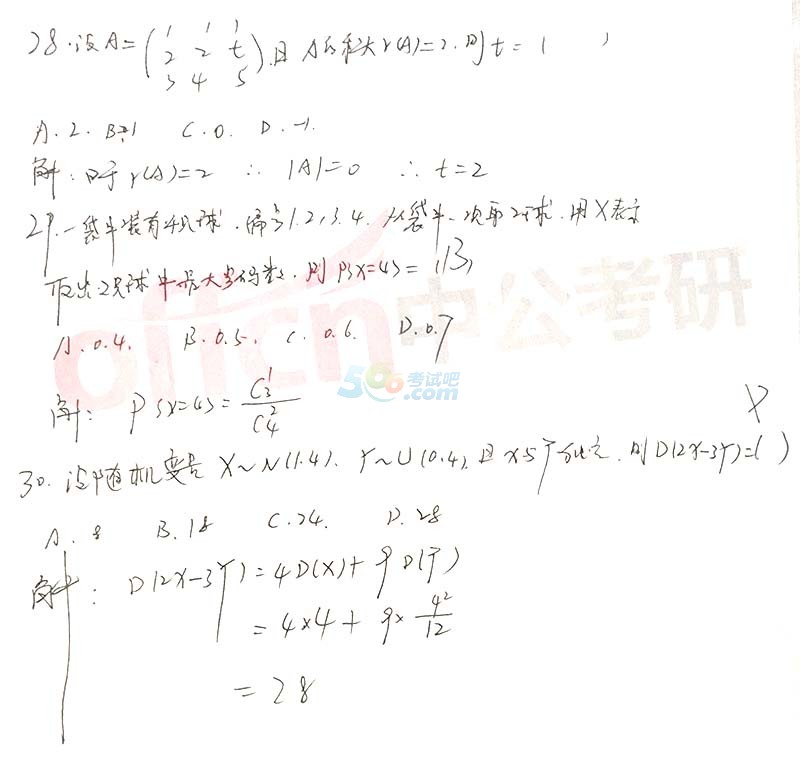 28.设A=(1 1 1
2 2 t
3 4 5),且A的秩r(A)=2.则t=( )
A.2. B.1 C.0. D.-1.
解:由于r(A)=2 ∴ |A|=0 ∴ t=2
29.一袋中装有4只球.编号1.2,3.4.从袋中一次取2球.用X表示
取出2只球中最大号码数.则P{X=4}=(B)
A.0.4. B.0.5. C.0.6. D.0.7
解: P{X=4}=C₃¹/C₄²
30.设随机变量X~N(1.4).Y~U(0.4),且X与Y独立.则D(2X-3Y)=( )
A.8 B.18 C.24. D.28
解: D(2X-3Y)=4D(X)+9D(Y)
=4×4+9×4²/12
=28
offcn中公考研
566考试吧
.com